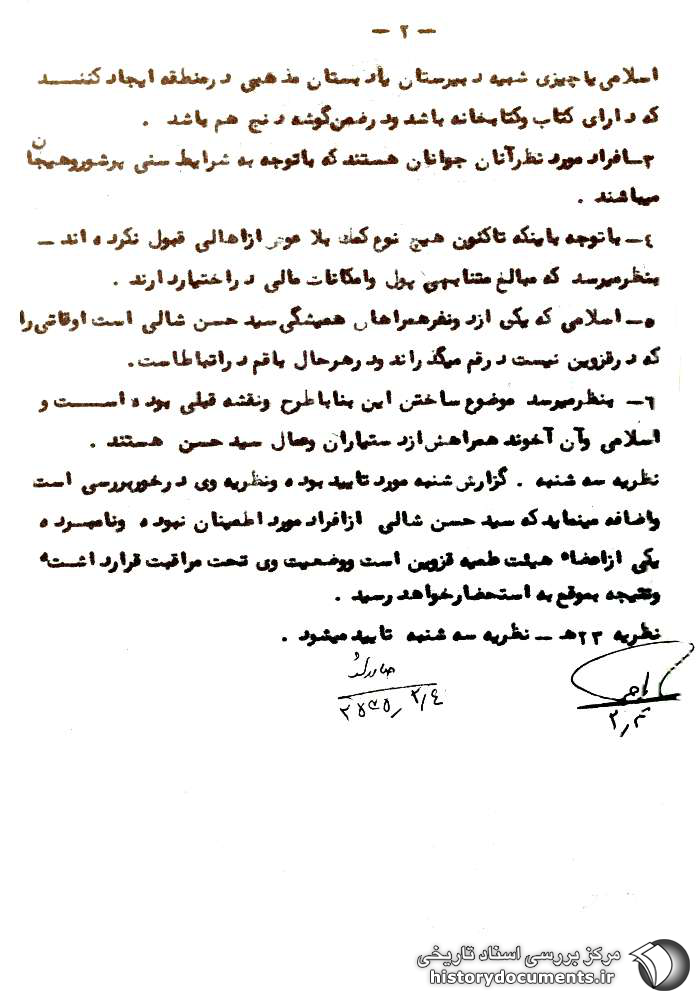 - ۲ -
اسلامی یا چیزی شبیه دبیرستان یا دبستان مذهبی در منطقه ایجاد کننـــد
که دارای کتاب و کتابخانه باشد و در ضمن گوشه دنج هم باشد .
۳ـ افراد مورد نظر آنان جوانان هستند که با توجه به شرایط سنی پر شور و هیجان
میباشند .
٤ـ با توجه باینکه تاکنون هیچ نوع کمک بلا عوض از اهالی قبول نکرده اند ـ
بنظر میرسد که مبالغ متنابهی پول و امکانات مالی در اختیار دارند .
٥ـ اسلامی که یکی از دو نفر همراهان همیشگی سید حسن شالی است اوقاتی را
که در قزوین نیست در قم میگذراند و در هر حال با قم در ارتباط است.
٦ـ بنظر میرسد موضوع ساختن این بنا با طرح و نقشه قبلی بوده اســـت و
اسلامی و آن آخوند همراهش از دستیاران و عمال سید حسن هستند .
نظریه سه شنبه . گزارش شنبه مورد تایید بوده و نظریه وی در خور بررسی است
و اضافه مینماید که سید حسن شالی از افراد مورد اطمینان نبوده و نامبـــرده
یکی از اعضاء هیئت علمیه قزوین است و وضعیت وی تحت مراقبت قرار داشته
و نتیجه بموقع به استحضار خواهد رسید .
نظریه ۲۳هـ ـ نظریه سه شنبه تایید میشود .
صادر شد
۲٥۳٥٫ ۳/٤
مرکز بررسی اسناد تاریخی
historydocuments.ir